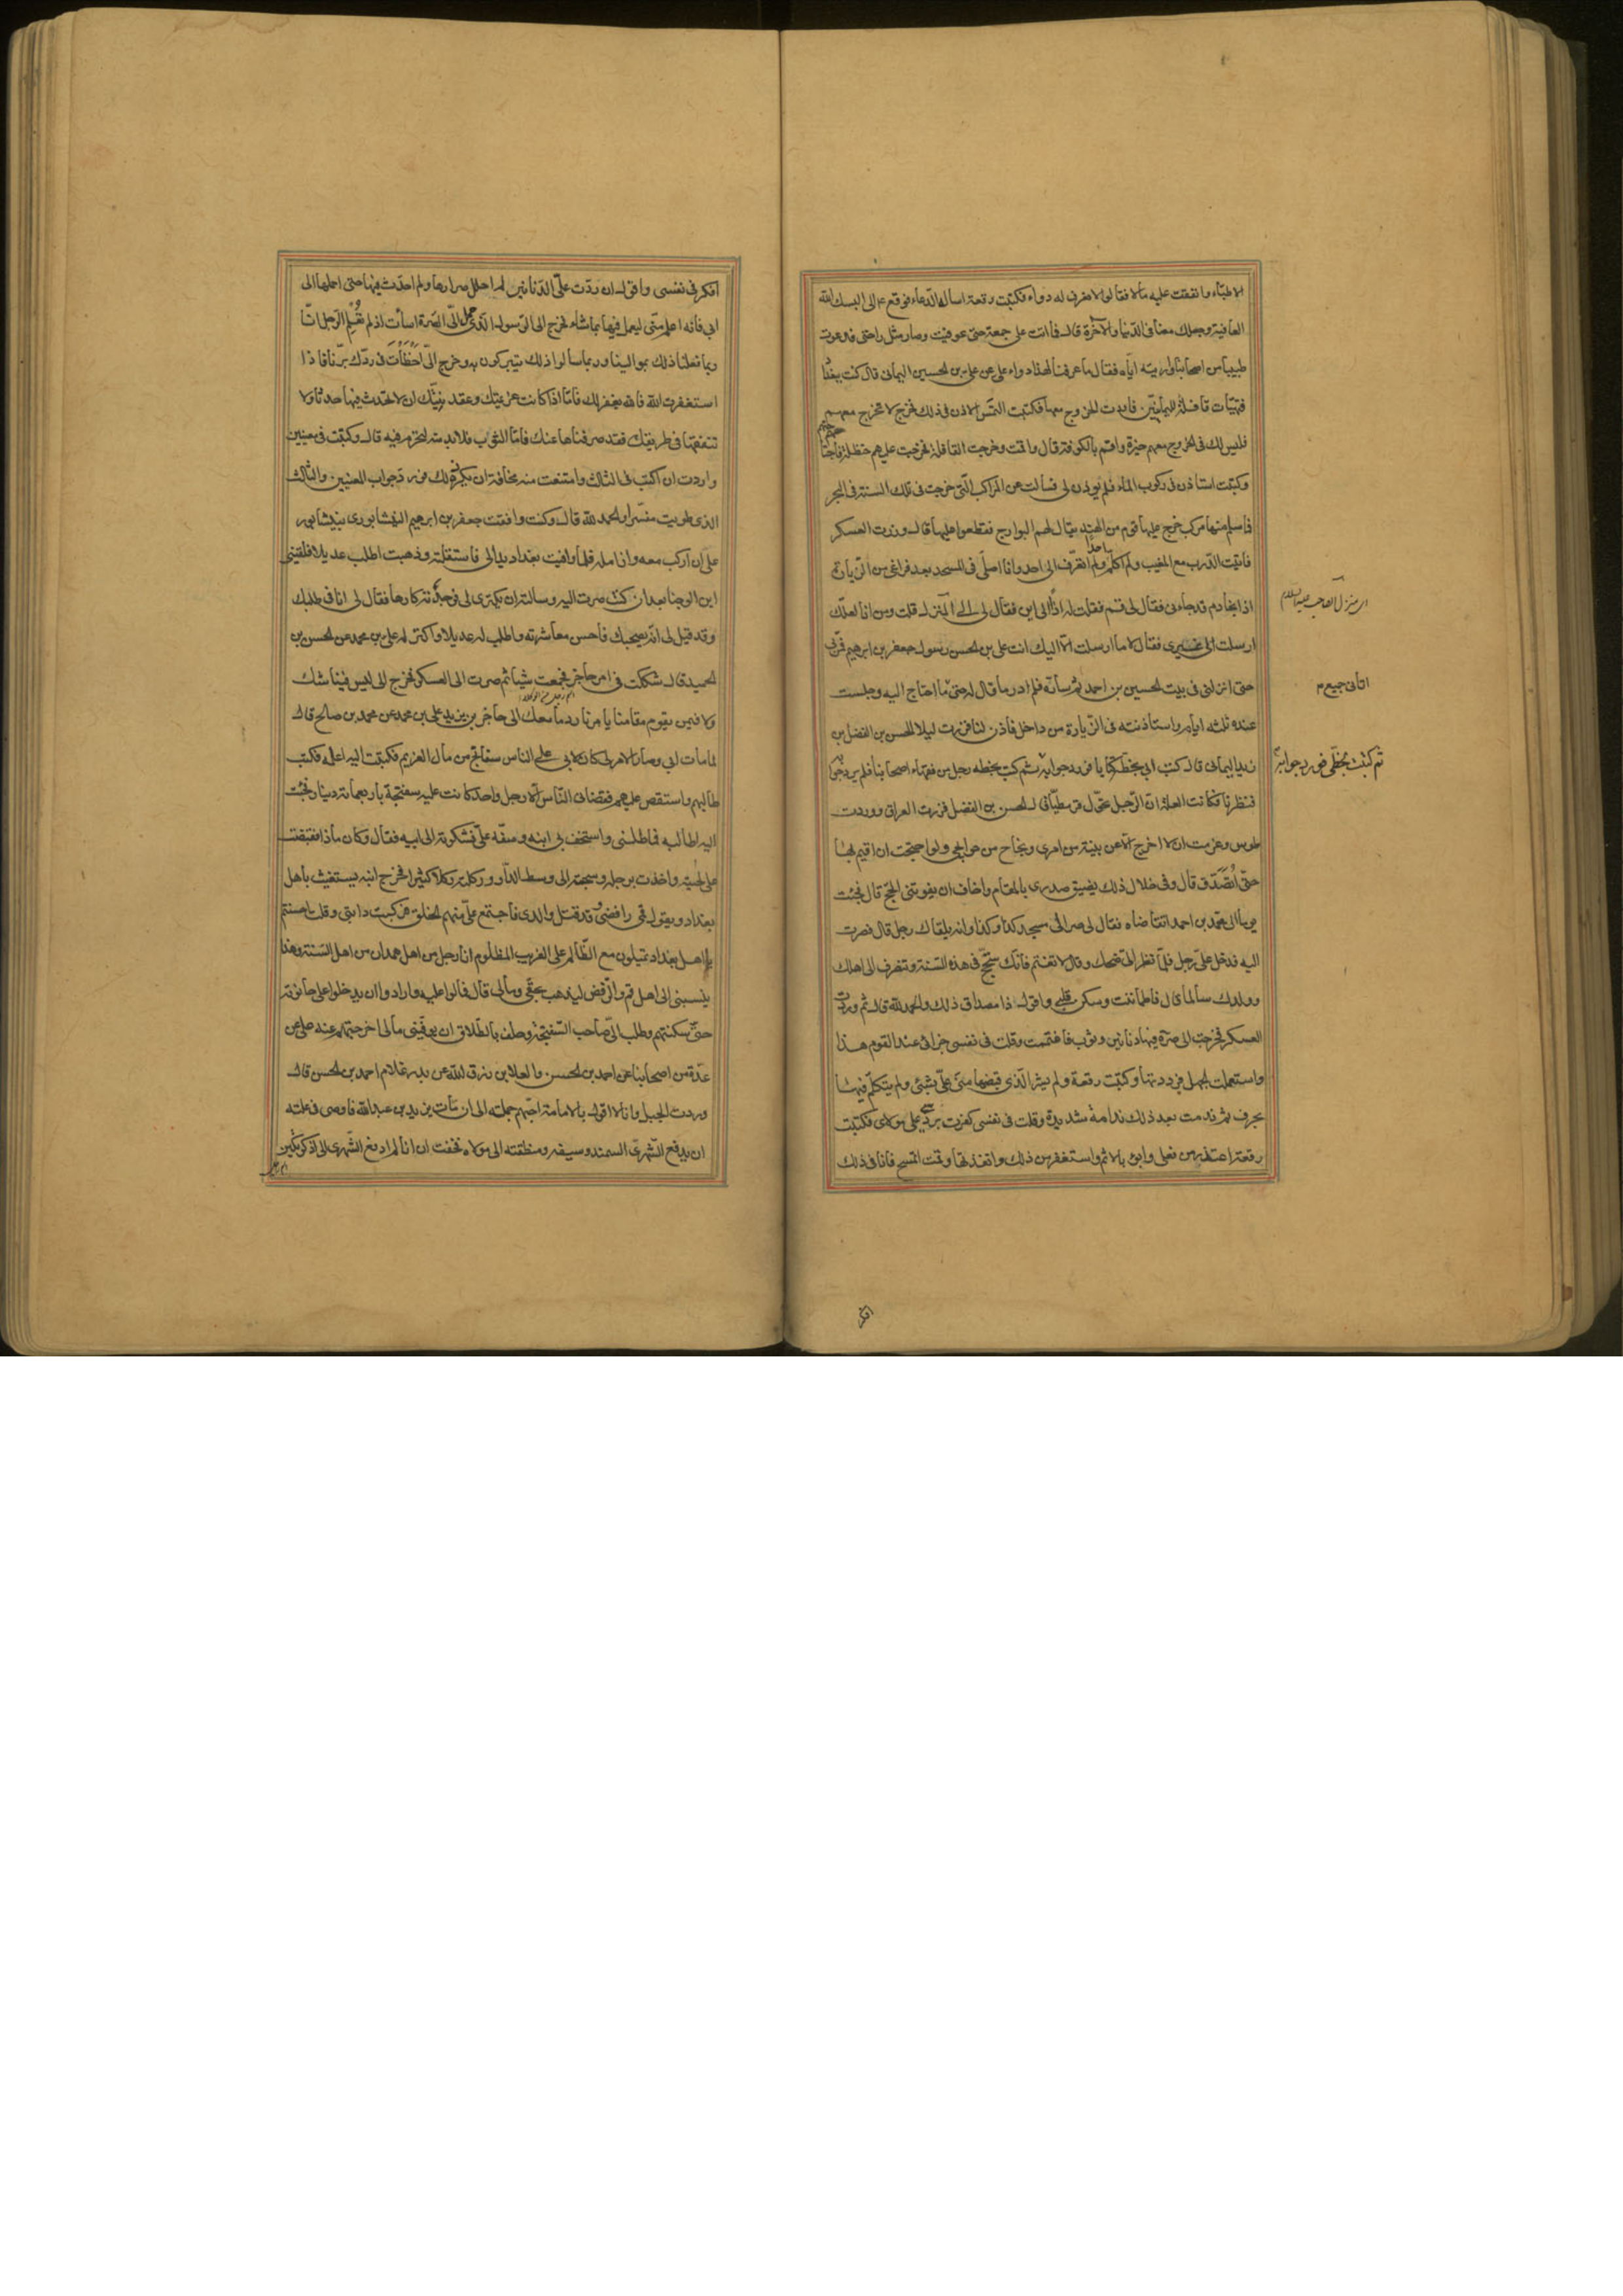 الاطبّاء وانفقت عليه مالا فقالوا لا نعرف له دواء فكتبت رقعة اساله الدّعاء فوقع ع الى البسك الله
العافية وجعلك معنا فى الدّنيا والآخرة قال فما اتت على جمعة حتى عوفيت وصار مثل راحتى فدعوت
طبيبا من اصحابنا واريته ايّاه فقال ما عرفنا لهذا دواء على عن على بن الحسين اليمانى قال كنت ببغداد
فتهيّات قافلة لليمانيّين فاردت الخروج معها فكتبت التمس الاذن فى ذلك فخرج لا تخرج معهم
فليس لك فى الخروج معهم خيرة واقم بالكوفة قال واقمت وخرجت القافلة فخرجت عليهم حنظلة فاجتاحتهم
وكتبت استاذن فى ركوب الماء فلم يوذن لى فسالت عن المراكب الّتى خرجت فى تلك السنة فى البحر
فما سلم منها مركب خرج عليها قوم من الهند يقال لهم البوارج فقطعوا عليها قال وزرت العسكر
فاتيت الدّرب مع المغيب ولم اكلم احدا ولم اتعرّف الى احد وانا اصلّى فى المسجد بعد فراغى من الزّيارة
اذا بخادم قد جاءنى فقال لى قم فقلت له اذاً الى اين فقال لى الى المنزل قلت ومن انا لعلك
ارسلت الى غيرى فقال لا ما ارسلت الا اليك انت على بن الحسن رسول جعفر بن ابرهيم فمرّ بى
حتى انزلنى فى بيت الحسين بن احمد ثم سارّه فلم ادر ما قال له حتى ما احتاج اليه وجلست
عنده ثلثه ايام واستاذنته فى الزّيارة من داخل فاذن لنا فزرت ليلا الحسن بن الفضل بن
زيد اليمانى قال كتب ابى بخطّه كتابا فورد جوابه ثم كتب بخطه رجل من فقهاء اصحابنا فلم يرد جوابه
فنظرنا فكانت العلة ان الرّجل تحوّل قرمطيّا قال الحسن بن الفضل فزرت العراق ووردت
طوس وعزمت ان لا اخرج الا عن بينة من امرى ونجاح من حوايجى ولو احتجت ان اقيم بها
حتى اتصدّق قال وفى خلال ذلك يضيق صدرى بالمقام واخاف ان يفوتنى الحجّ قال فجئت
يوما الى محمد بن احمد اتقاضاه فقال لى صر الى مسجد كذا وكذا وانه يلقاك رجل قال فصرت
اليه فدخل علىّ رجل فلما نظر الىّ ضحك وقال لا تغتم فانّك ستحجّ فى هذه السّنة وتنصرف الى اهلك
وولدك سالما قال فاطماننت وسكن قلبى واقول ذا مصداق ذلك والحمد لله قال ثم وردت
العسكر فخرجت الى صرّة فيها دنانير وثوب فاغتممت وقلت فى نفسى جزائى عند القوم هذا
واستعملت الجهل فرددتها وكتبت رقعة ولم يشر الّذى قبضها منّى علىّ بشئ ولم يتكلّم فيها
بحرف ثم ندمت بعد ذلك ندامة شديدة وقلت فى نفسى كفرت بردّى على مولاى فكتبت
رقعة اعتذر من فعلى وابوء بالاثم واستغفر من ذلك وانفذتها وقمت اتمسح فانا فى ذلك
اى منزل الصاحب عليه السلام
اتانى جميع م
ثم كتبت بخطّى فورد جوابه
افكر
افكر فى نفسى واقول ان ردّت علىّ الدّنانير لم احلل صرارها ولم احدث فيها حتى احملها الى
ابى فانه اعلم منّى ليعمل فيها بما شاء فخرج الى الرّسول الّذى حمل الىّ الصّرة اسات اذ لم تعلم الرّجل انّا
ربما فعلنا ذلك بموالينا وربما سالوا ذلك يتبركون به وخرج الىّ اخطات فى ردّك برّنا فاذا
استغفرت الله فالله يغفر لك فامّا اذا كانت عزيمتك وعقد نيّتك ان لا تحدث فيها حدثا ولا
تنفقها فى طريقك فقد صرفناها عنك فامّا الثوب فلا بد منه لتحرم فيه قال وكتبت فى معنيين
واردت ان اكتب فى الثالث وامتنعت منه مخافة ان يكره ذلك فورد جواب المعنيين والثالث
الذى طويت مفسّرا والحمد لله قال وكنت وافقت جعفر بن ابرهيم النيشابورى بنيشابور
على ان اركب معه وازامله فلما وافيت بغداد بدا لى فاستقلته وذهبت اطلب عديلا فلقينى
ابن الوجنا بعد ان كنت صرت اليه وسالته ان يكترى لى فوجدته كارها فقال لى انا فى طلبك
وقد قيل لى انّه يصحبك فاحسن معاشرته واطلب له عديلا واكتر له على بن محمد عن الحسن بن
الحميد قال شككت فى امر حاجز فجمعت شيئا ثم صرت الى العسكر فخرج الى ليس فينا شك
ولا فيمن يقوم مقامنا بامرنا رد ما معك الى حاجز بن يزيد على بن محمد عن محمد بن صالح قال
لما مات ابى وصار الامر لى كان لابى على الناس سفاتج من مال الغريم فكتبت اليه اعلمه فكتب
طالبهم واستقص عليهم فقضانى النّاس الا رجل واحد كانت عليه سفتجة باربعمائة دينار فجئت
اليه اطالبه فماطلنى واستخف بى ابنه وسفه علىّ فشكوته الى ابيه فقال وكان ماذا فقبضت
على لحيته واخذت برجله وسحبته الى وسط الدّار وركلته ركلا كثيرا فخرج ابنه يستغيث باهل
بغداد ويقول قمى رافضى قد قتل والدى فاجتمع علىّ منهم الخلق فركبت دابتى وقلت احسنتم
يا اهل بغداد تميلون مع الظّالم على الغريب المظلوم انا رجل من اهل همدان من اهل السّنة وهذا
ينسبنى الى اهل قم والرّفض ليذهب بحقّى ومالى قال فمالوا عليه وارادوا ان يدخلوا على حانوته
حتى سكنتهم وطلب الىّ صاحب السّفتجة وحلف بالطّلاق ان يوفّينى مالى اخرجتهم عنه على عن
عدّة من اصحابنا عن احمد بن الحسن والعلا بن رزق الله عن بدر غلام احمد بن الحسن قال
وردت الجبل وانا لا اقول بالامامة احبّهم جملة الى ان مات يزيد بن عبد الله فاوصى فى علته
ان يدفع الشّهرى السمند وسيفه ومنطقته الى مولاه فخفت ان انا لم ادفع الشّهرى الى اذكوتكين